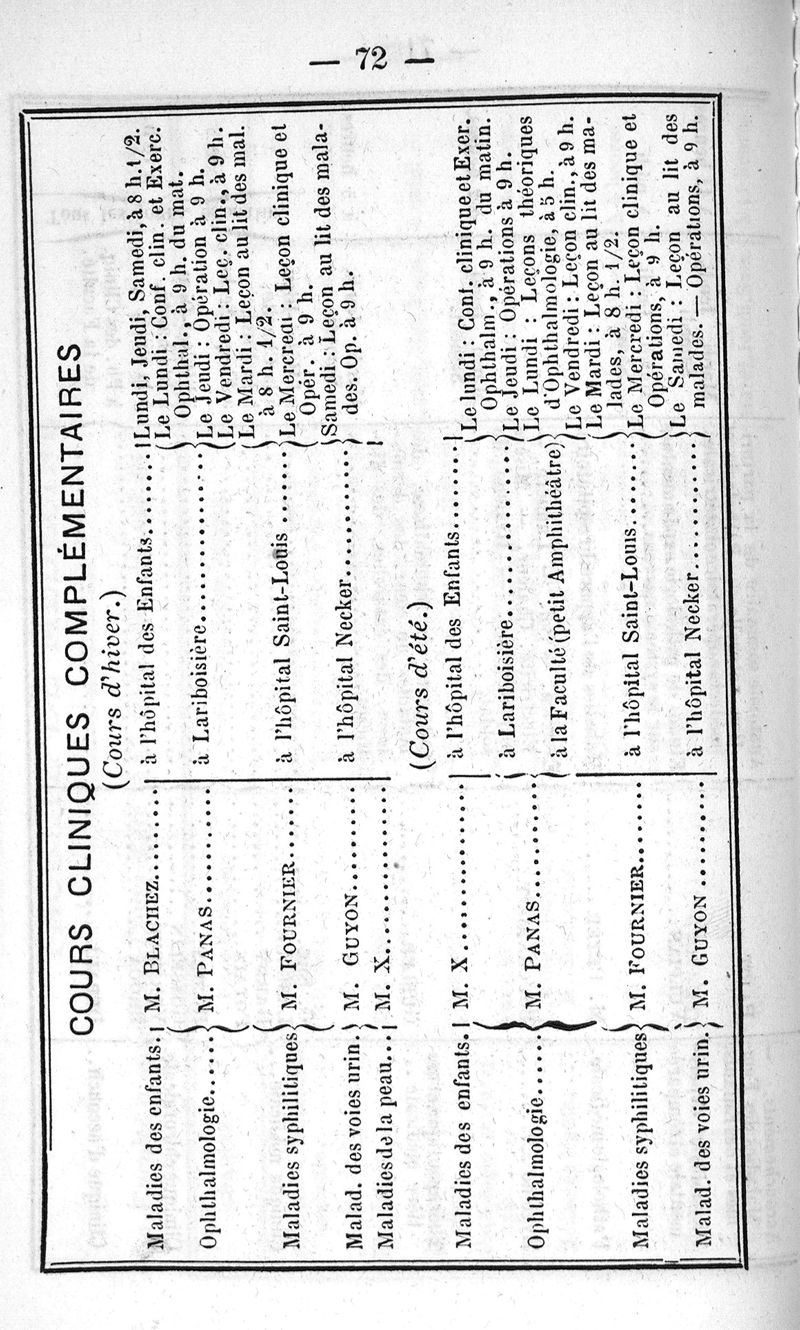 — 72 —
COURS CLINIQUES COMPLÉMENTAIRES
(Cours d'hiver.)
Maladies des enfants. M. BLACHEZ........ à l'hôpital des Enfants....... Lundi, Jeudi, Samedi, à 8 h. 1/2.
Ophthalmologie...... M. PANAS........... à Lariboisière............... Le Lundi : Conf. clin. et Exerc.
Ophthal., à 9 h. du mat.
Le Jeudi : Opération à 9 h.
Le Vendredi : Leç. clin., à 9 h.
Maladies syphilitiques M. FOURNIER....... à l'hôpital Saint-Louis ....... Le Mardi : Leçon au lit des mal.
à 8 h. 1/2.
Le Mercredi : Leçon clinique et
Opér. à 9 h.
Malad. des voies urin. M. GUYON.......... à l'hôpital Necker............ Samedi : Leçon au lit des mala-
des. Op. à 9 h.
Maladies de la peau... M. X...............
(Cours d'été.)
Maladies des enfants. M. X................ à l'hôpital des Enfants........ Le lundi : Conf. clinique et Exer.
Ophthalmologie..... M. PANAS........... à Lariboisière............... Ophthalm., à 9 h. du matin.
Le Jeudi : Opérations à 9 h.
à la Faculté (petit Amphithéâtre) Le Lundi : Leçons théoriques
d'Ophthalmologie, à 5 h.
Le Vendredi : Leçon clin., à 9 h.
Maladies syphilitiques M. FOURNIER....... à l'hôpital Saint-Louis........ Le Mardi : Leçon au lit des ma-
lades, à 8 h. 1/2.
Le Mercredi : Leçon clinique et
Opérations, à 9 h.
Malad. des voies urin. M. GUYON .......... à l'hôpital Necker............ Le Samedi : Leçon au lit des
malades. — Opérations, à 9 h.